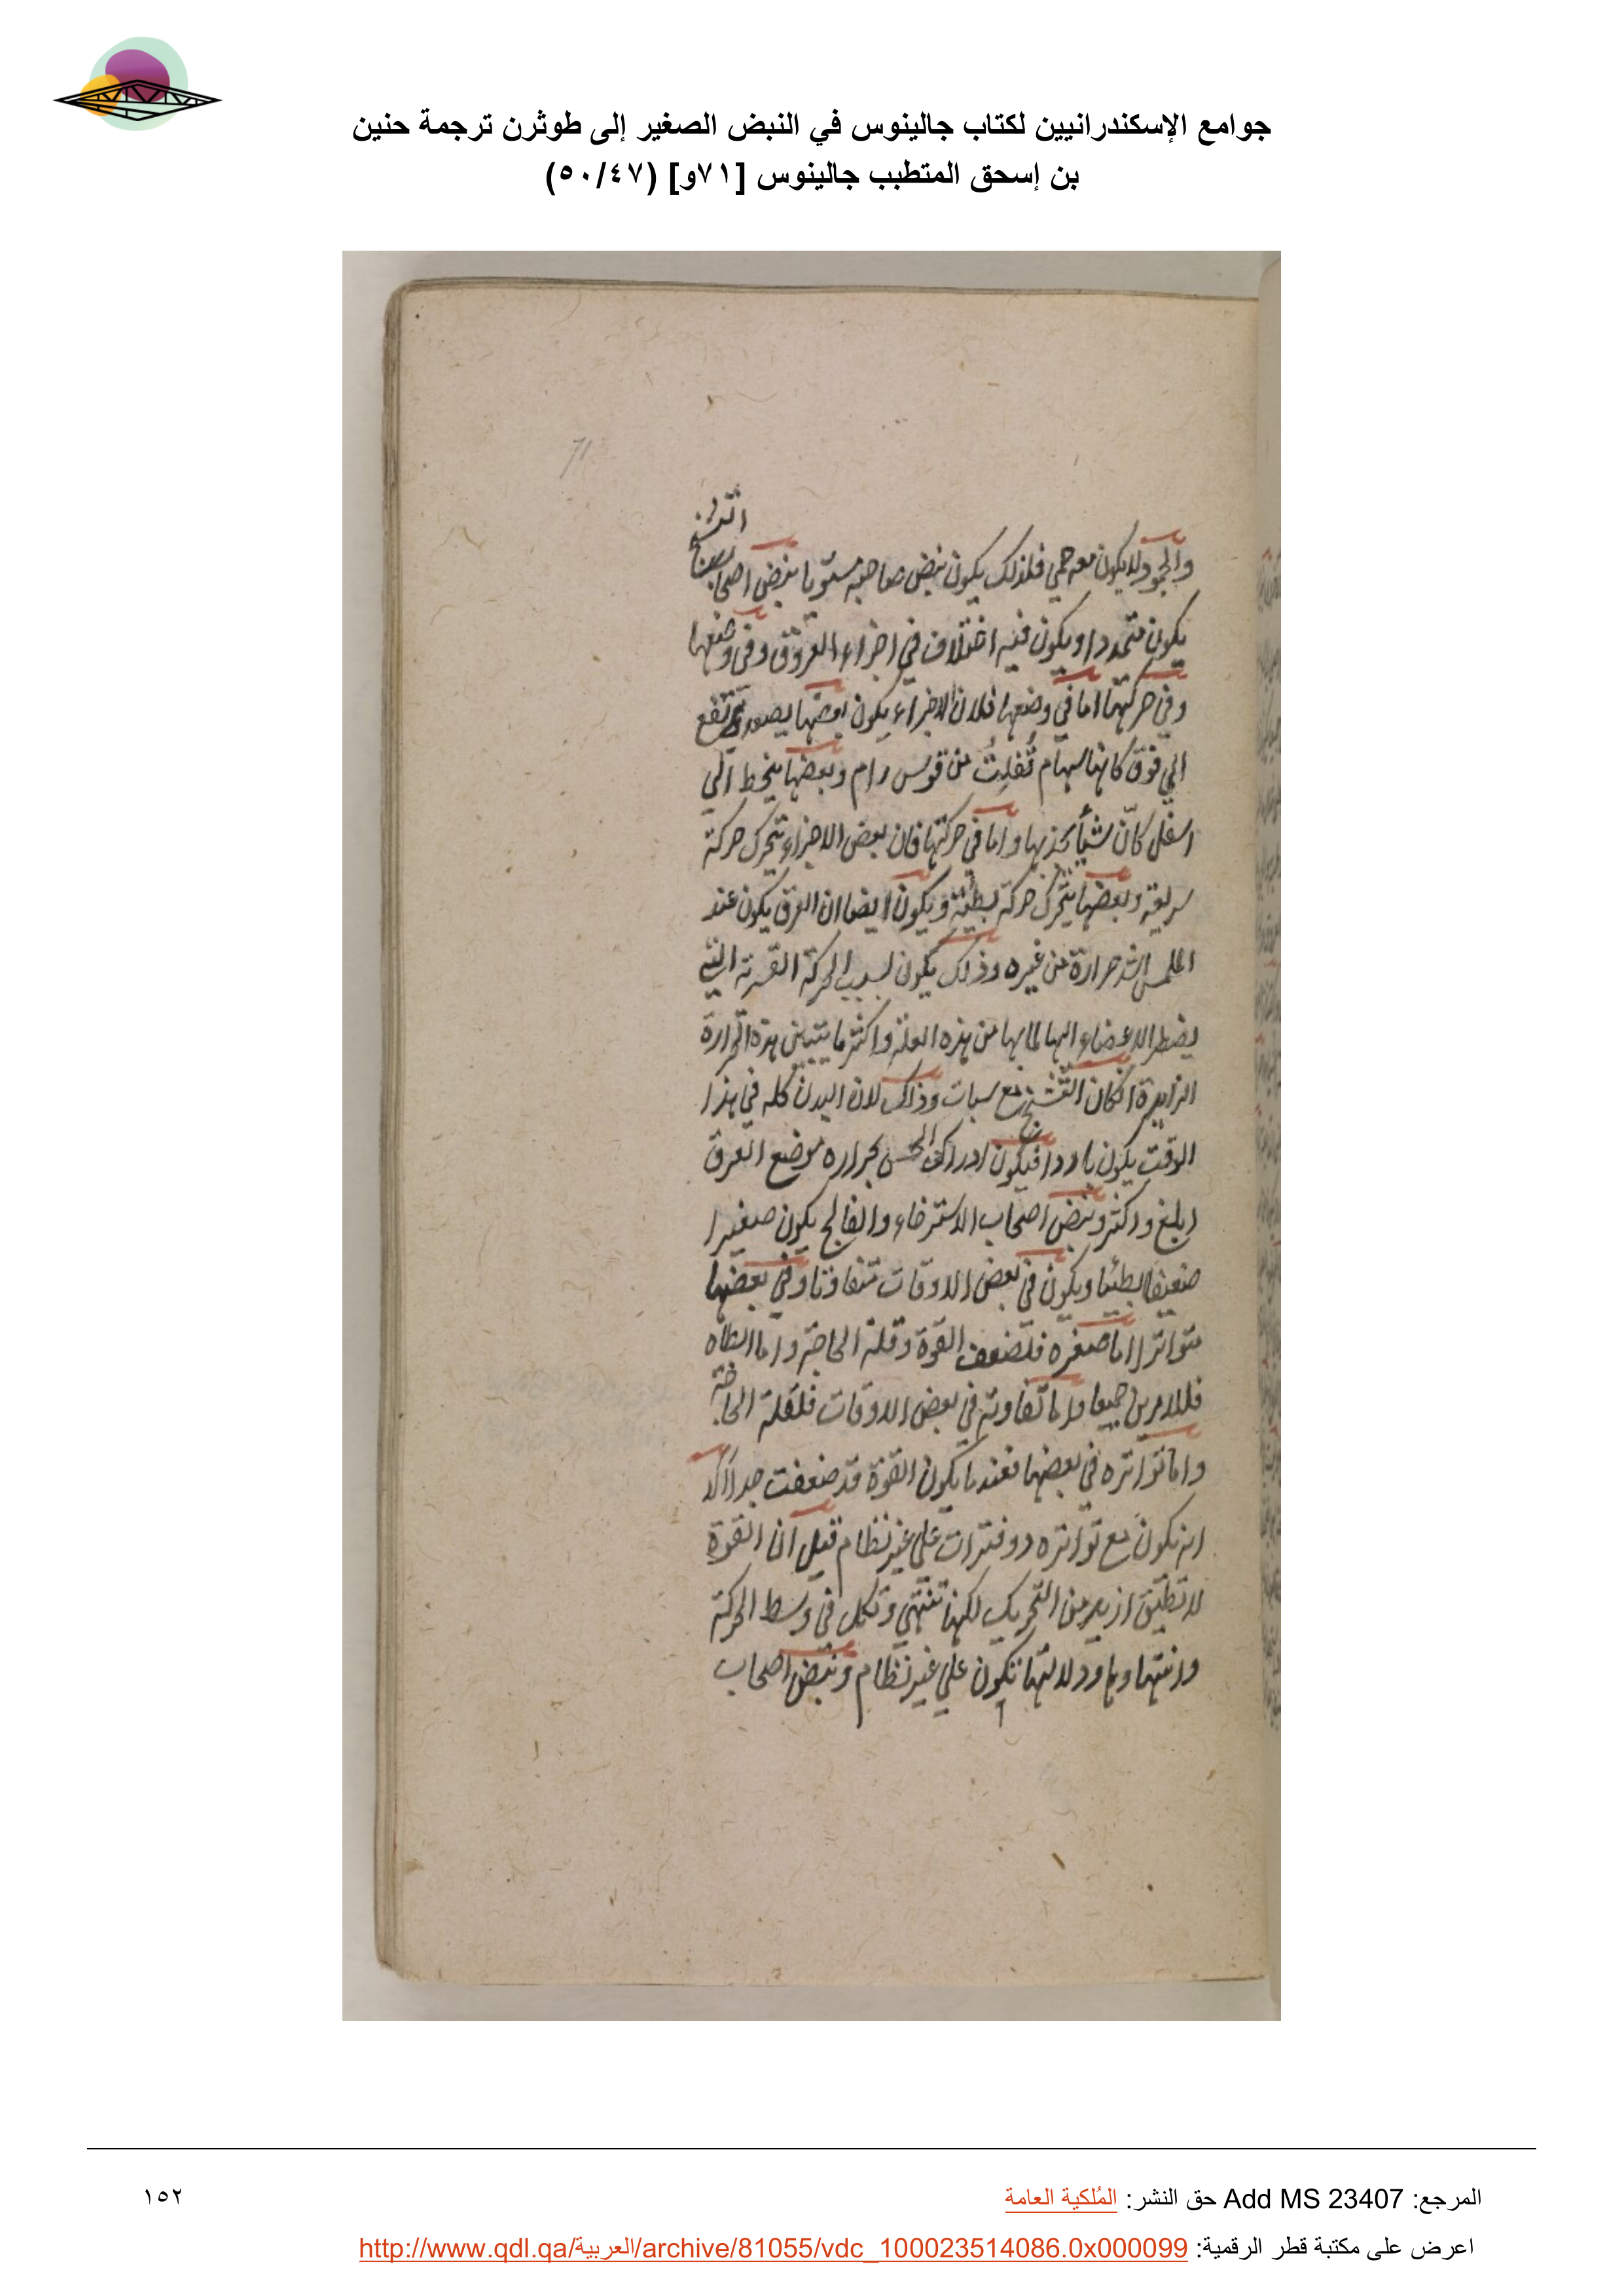 جوامع الإسكندرانيين لكتاب جالينوس في النبض الصغير إلى طوثرن ترجمة حنين
بن إسحق المتطبب جالينوس [٧١و] (٥٠/٤٧)
71
والجمود لا يكون معه حمي فلذلك يكون نبض صاحبه مستويا نبض اصحاب التشنج
يكون متمددا ويكون فيه اختلاف في اجزاء العروق وفي وضعها
وفي حركتها اما في وضعها فلان الاجزاء يكون بعضها يصعد ويرتفع
الي فوق كانها سهام تُفلِتُ من قوس رام وبعضها ينحط الي
اسفل كانّ شيأ يجذبها واما في حركتها فان بعض الاجزاء يتحرك حركة
سريعة وبعضها يتحرك حركة بطيئة ويكون ايضا ان العرق يكون عند
الملمس اشد حرارة من غيره وذلك يكون لسبب الحركة القسرية التي
يضطر الاعضاء اليها لما بها من هذه العلة واكثر ما يتبين هذه الحرارة
الزايدة اذا كان التشنج مع سبات وذلك لان البدن كله في هذا
الوقت يكون باردا فيكون ادراك الحس بحراره موضع العرق
ابلغ واكثر ونبض اصحاب الاسترخاء والفالج يكون صغيرا
ضعيفا بطئيا ويكون في بعض الاوقات متفاوتا وفي بعضها
متواترا اما صغره فلضعف القوة وقلة الحاجة واما ابطاه
فللامرين جميعا واما تفاوته في بعض الاوقات فلقلة الحاجة
واما تواتره في بعضها فعندما يكون القوة قد ضعفت جدا الا
انه يكون مع تواتره ذو فترات علي غير نظام قبل ان القوة
لا تطيق ازيد من التحريك لكنها تنتهي وتكل في وسط الحركة
وانتهاوها ودلالتها تكون علي غير نظام ونبض اصحاب
المرجع: Add MS 23407 حق النشر: المُلكية العامة
١٥٢
اعرض على مكتبة قطر الرقمية: http://www.qdl.qa/العربية/archive/81055/vdc_100023514086.0x000099